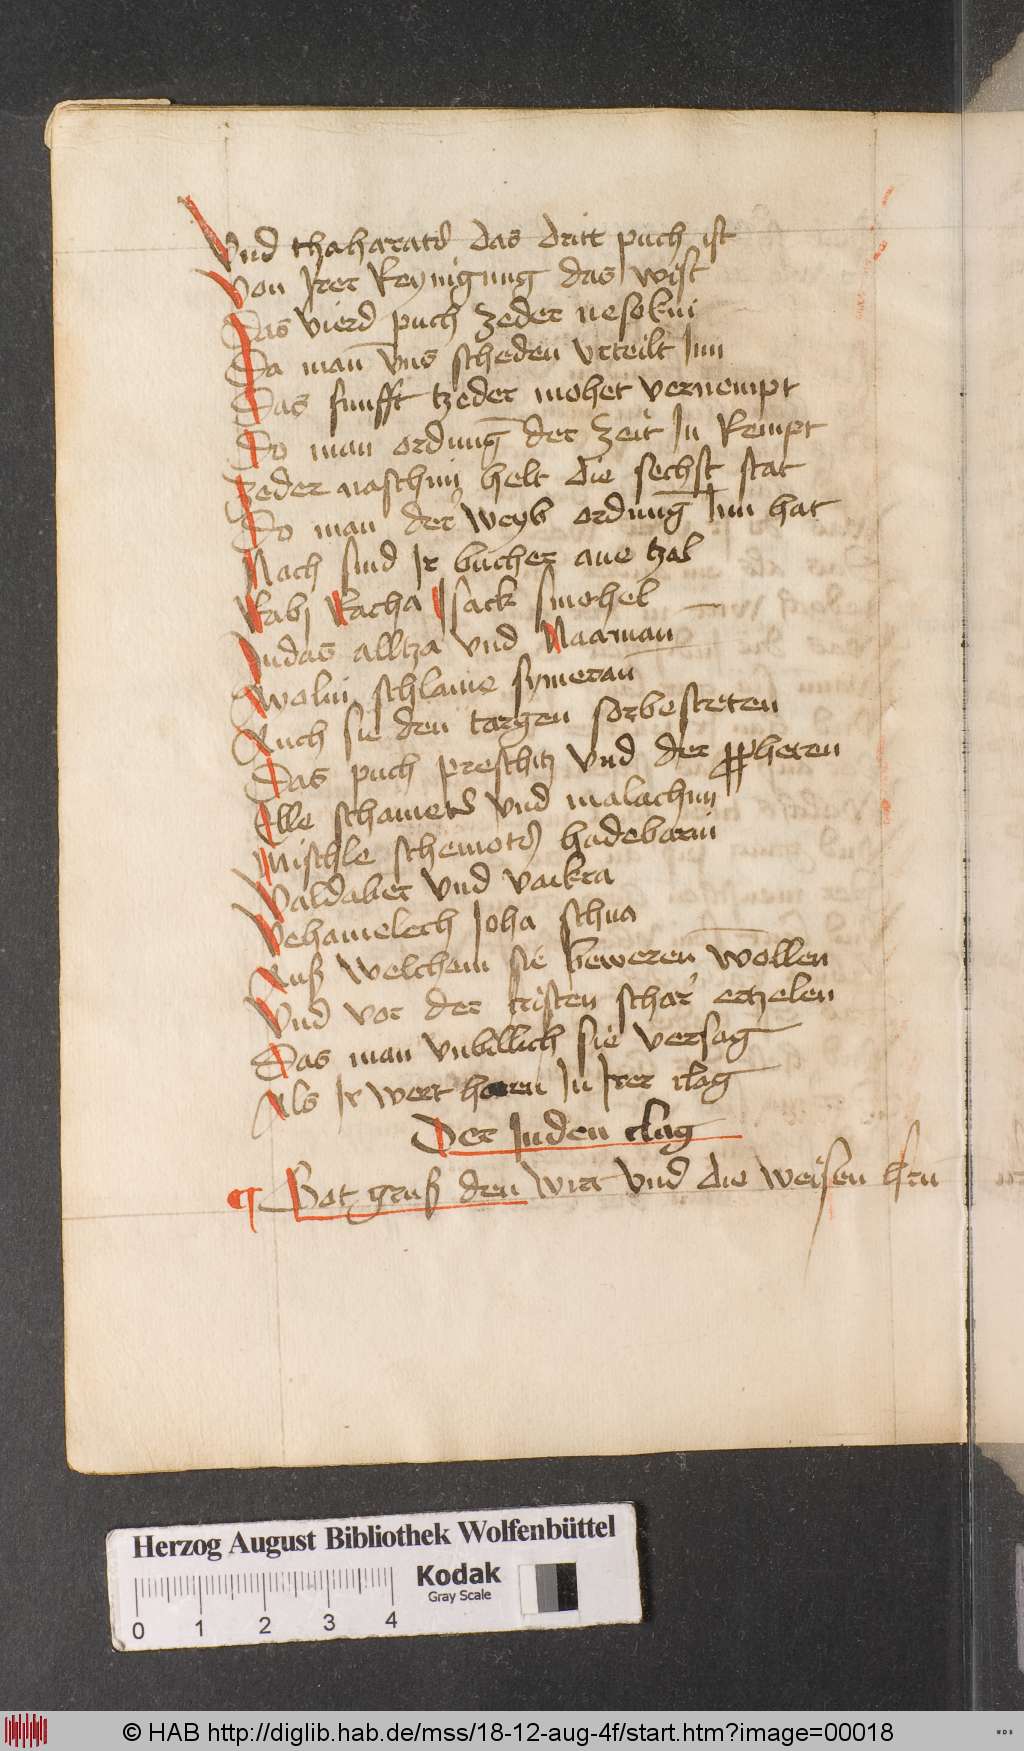 Vnd thaharatd das dritt puch ist
Von Irer Reynigung das wist
Das vierd puch zeder nesokin
Da man vns scheden vrteilt Inn
Das funfft tzeder mohet vernempt
Do man ordung der zeit In kempt
Zeder naschim helt die sechst stat
Do man der weyb ordnung Inn hat
Nach sind Ir bucher ane tzal
Rabj Racha Isack smohel
Judas alltza vnd Naaman
Awolui schlame symeran
Auch sie den targen sorbestreten
Das puch preschitz vnd der ppheten
Elle schamerd vnd malachim
Mischle schemotd hadebarm
Valdaber vnd vaikra
Vehamelech Joha schua
Auß welchem sie beweren wollen
Vnd vor der cristen schar ertzelen
Das man vnbillich sie versag
Als Ir wert horen In Irer clag
Der Juden clag
Got gruß den wirt vnd die weisen hern
Herzog August Bibliothek Wolfenbüttel
Kodak
Gray Scale
0 1 2 3 4
© HAB http://diglib.hab.de/mss/18-12-aug-4f/start.htm?image=00018